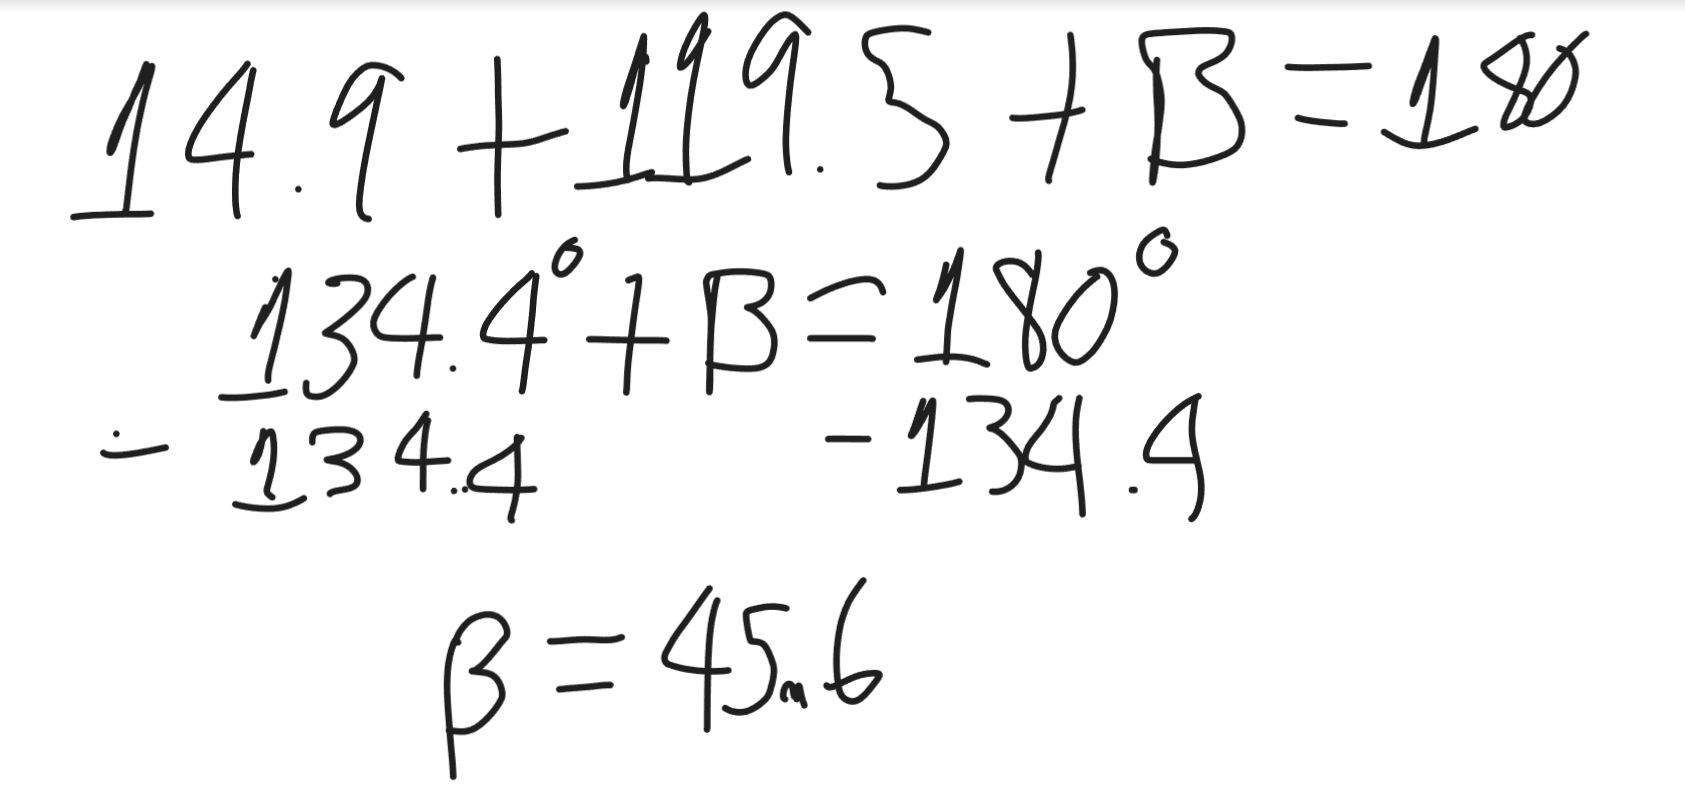 14.9 + 119.5 + B = 180
134.4° + B = 180°
- 134.4 - 134.4
β = 45.6